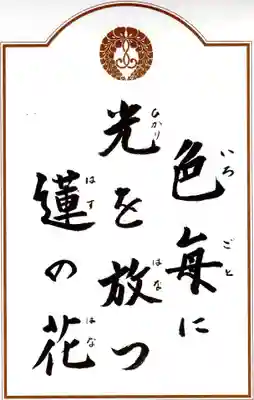 色毎に
光を放つ
蓮の花
いろ
ごと
ひかり
はな
はす
はな